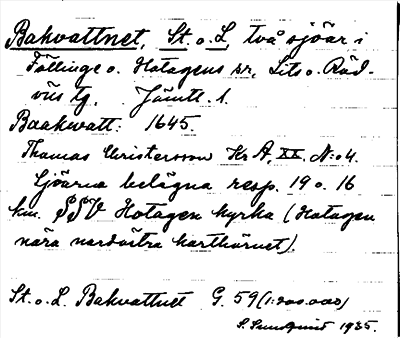 Bakvattnet, St. o. L., två sjöar i
Föllinge o. Hotagens sr, Lits o. Röd-
öns tg. Jämtl. l.
Baakwatt: 1645.
Thomas Christersson Kr A, XX. N:o 4.
Sjöarna belägna resp. 19 o. 16
km. SSV Hotagen kyrka (Hotagen
nära nordöstra karthörnet).
St. o. L. Bakvattnet G. 59 (1:200.000)
S. Sundqvist 1935.